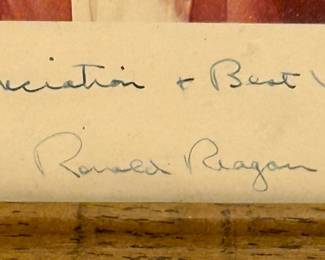 eciation + Best W
Ronald Reagan